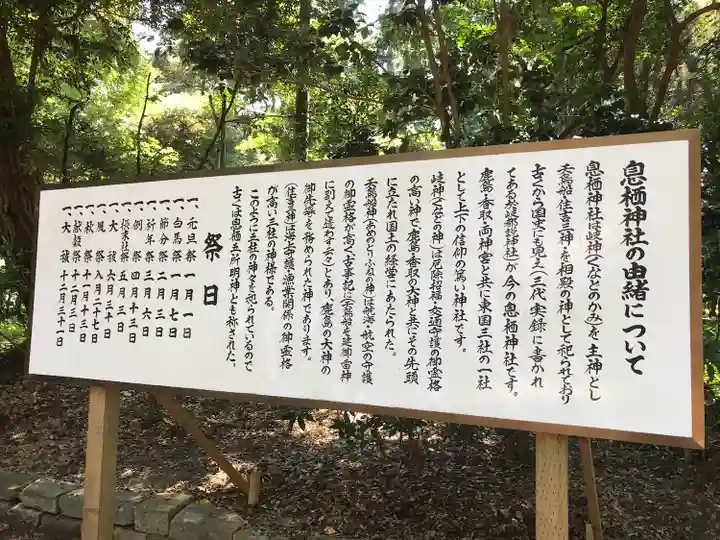 息栖神社の由緒について
息栖神社は岐神(くなどのかみ)を主神とし
天鳥船・住吉三神を相殿の神として祀られており
古くから国史にも見え(三代実録に書かれ
てある於岐都説神社)が今の息栖神社です。
鹿島・香取両神宮と共に東国三社の一社
として上下の信仰の篤い神社です。
岐神(くなどの神)は厄除招福・交通守護の御霊格
の高い神で、鹿島・香取の大神と共にその先頭
に立たれ国土の経営にあたられた。
天鳥船神(あめのとりふねの神)は航海・航空の守護
の御霊格が高く(古事記に天鳥船を建御雷神
に副えて遣わす云々)とあり、鹿島の大神の
御先導を務められた神であります。
(住吉神)は海上守護・漁業関係の御霊格
が高い三社の神様である。
このように五社の神々を祀られているので
古くは息栖五所明神とも称された。
祭日
一、元旦祭 一月一日
一、白馬祭 一月七日
一、節分祭 二月三日
一、祈年祭 三月六日
一、例祭 四月十三日
一、五月三日
一、大祓 六月三十日
一、風祭 八月二十七日
一、秋祭 十一月十三日
一、献穀祭 十二月三日
一、大祓 十二月三十一日